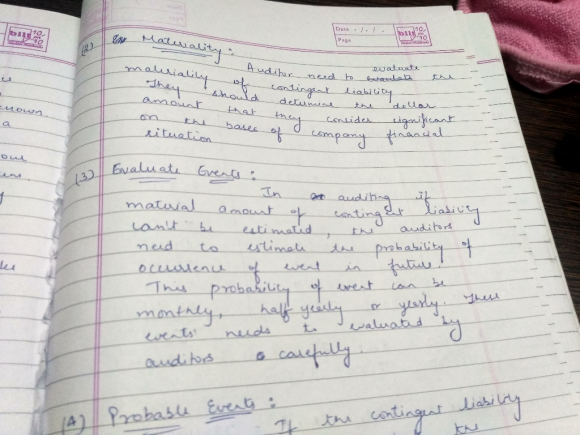 Date
Page
(2) Materiality :
Auditor need to evaluate the
materiality of contingent liability
They should determine the dollar
amount that they consider significant
on the bases of company financial
situation
(3) Evaluate Events :
In auditing if
material amount of contingent liability
can't be estimated, the auditors
need to estimate the probability of
occurrence of event in future.
This probability of event can be
monthly, half yearly or yearly. These
events needs to evaluated by
auditors carefully.
(4) Probable Events :
If the contingent liability
the